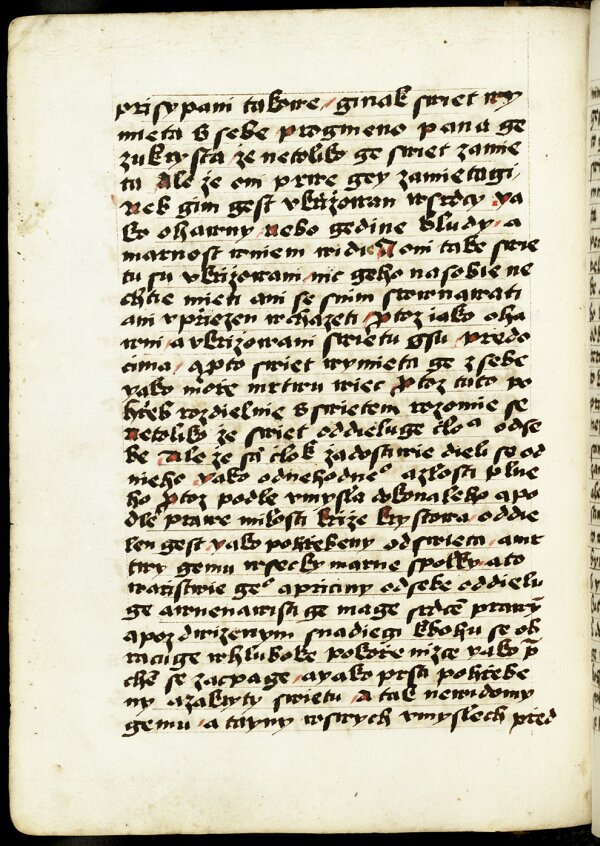 prisypani takowe / ginak swiet wy
mieta s sebe / Progmeno pana ge
zukrysta / ze netoliko ge swiet zamie
ta / Ale ze oni prwe gey zamietagi /
Neb gim gest vkrizowan wsrdcy / ya
ko ohawny / Nebo gedine bludy / a
marnost wniem widie / A oni take swie
tu su vkrizowani / nic geho nasobie ne
chtie mieti ani se snim srownawati
ani vpriezen wchazeti / Protoz iako oha
wni / a vkrizowani swietu gsu / Predo
cima / aproto swiet wymieta ge zsebe
yako more mrtwu wiec / Protoz tuto po
hreb rozdielnie s swietem rozomie se
Netoliko ze swiet oddieluge clo° odse
be / Ale ze sa clok zadostiwie dieli se od
nieho / yako odnehodne° azlosti plne
ho / Protoz podle vmysla dokonaleho apo
dle prawe milosti krize krystowa / oddie
len gest / yako pohrebeny / odswieta / amr
twy gemu wsecky marne spolky / ato
waristwie ge° apriciny odsebe oddielu
ge awnenawisti ge mage srdce prawym
apozdwizenym snadiegi kbohu se ob
racuge whluboke pokore nizce yako p
che se zacpage / ayako prsti pohrebe
ny azakryty swietu / A tak newidomy
gemu / a tayny wswych vmyslech pred